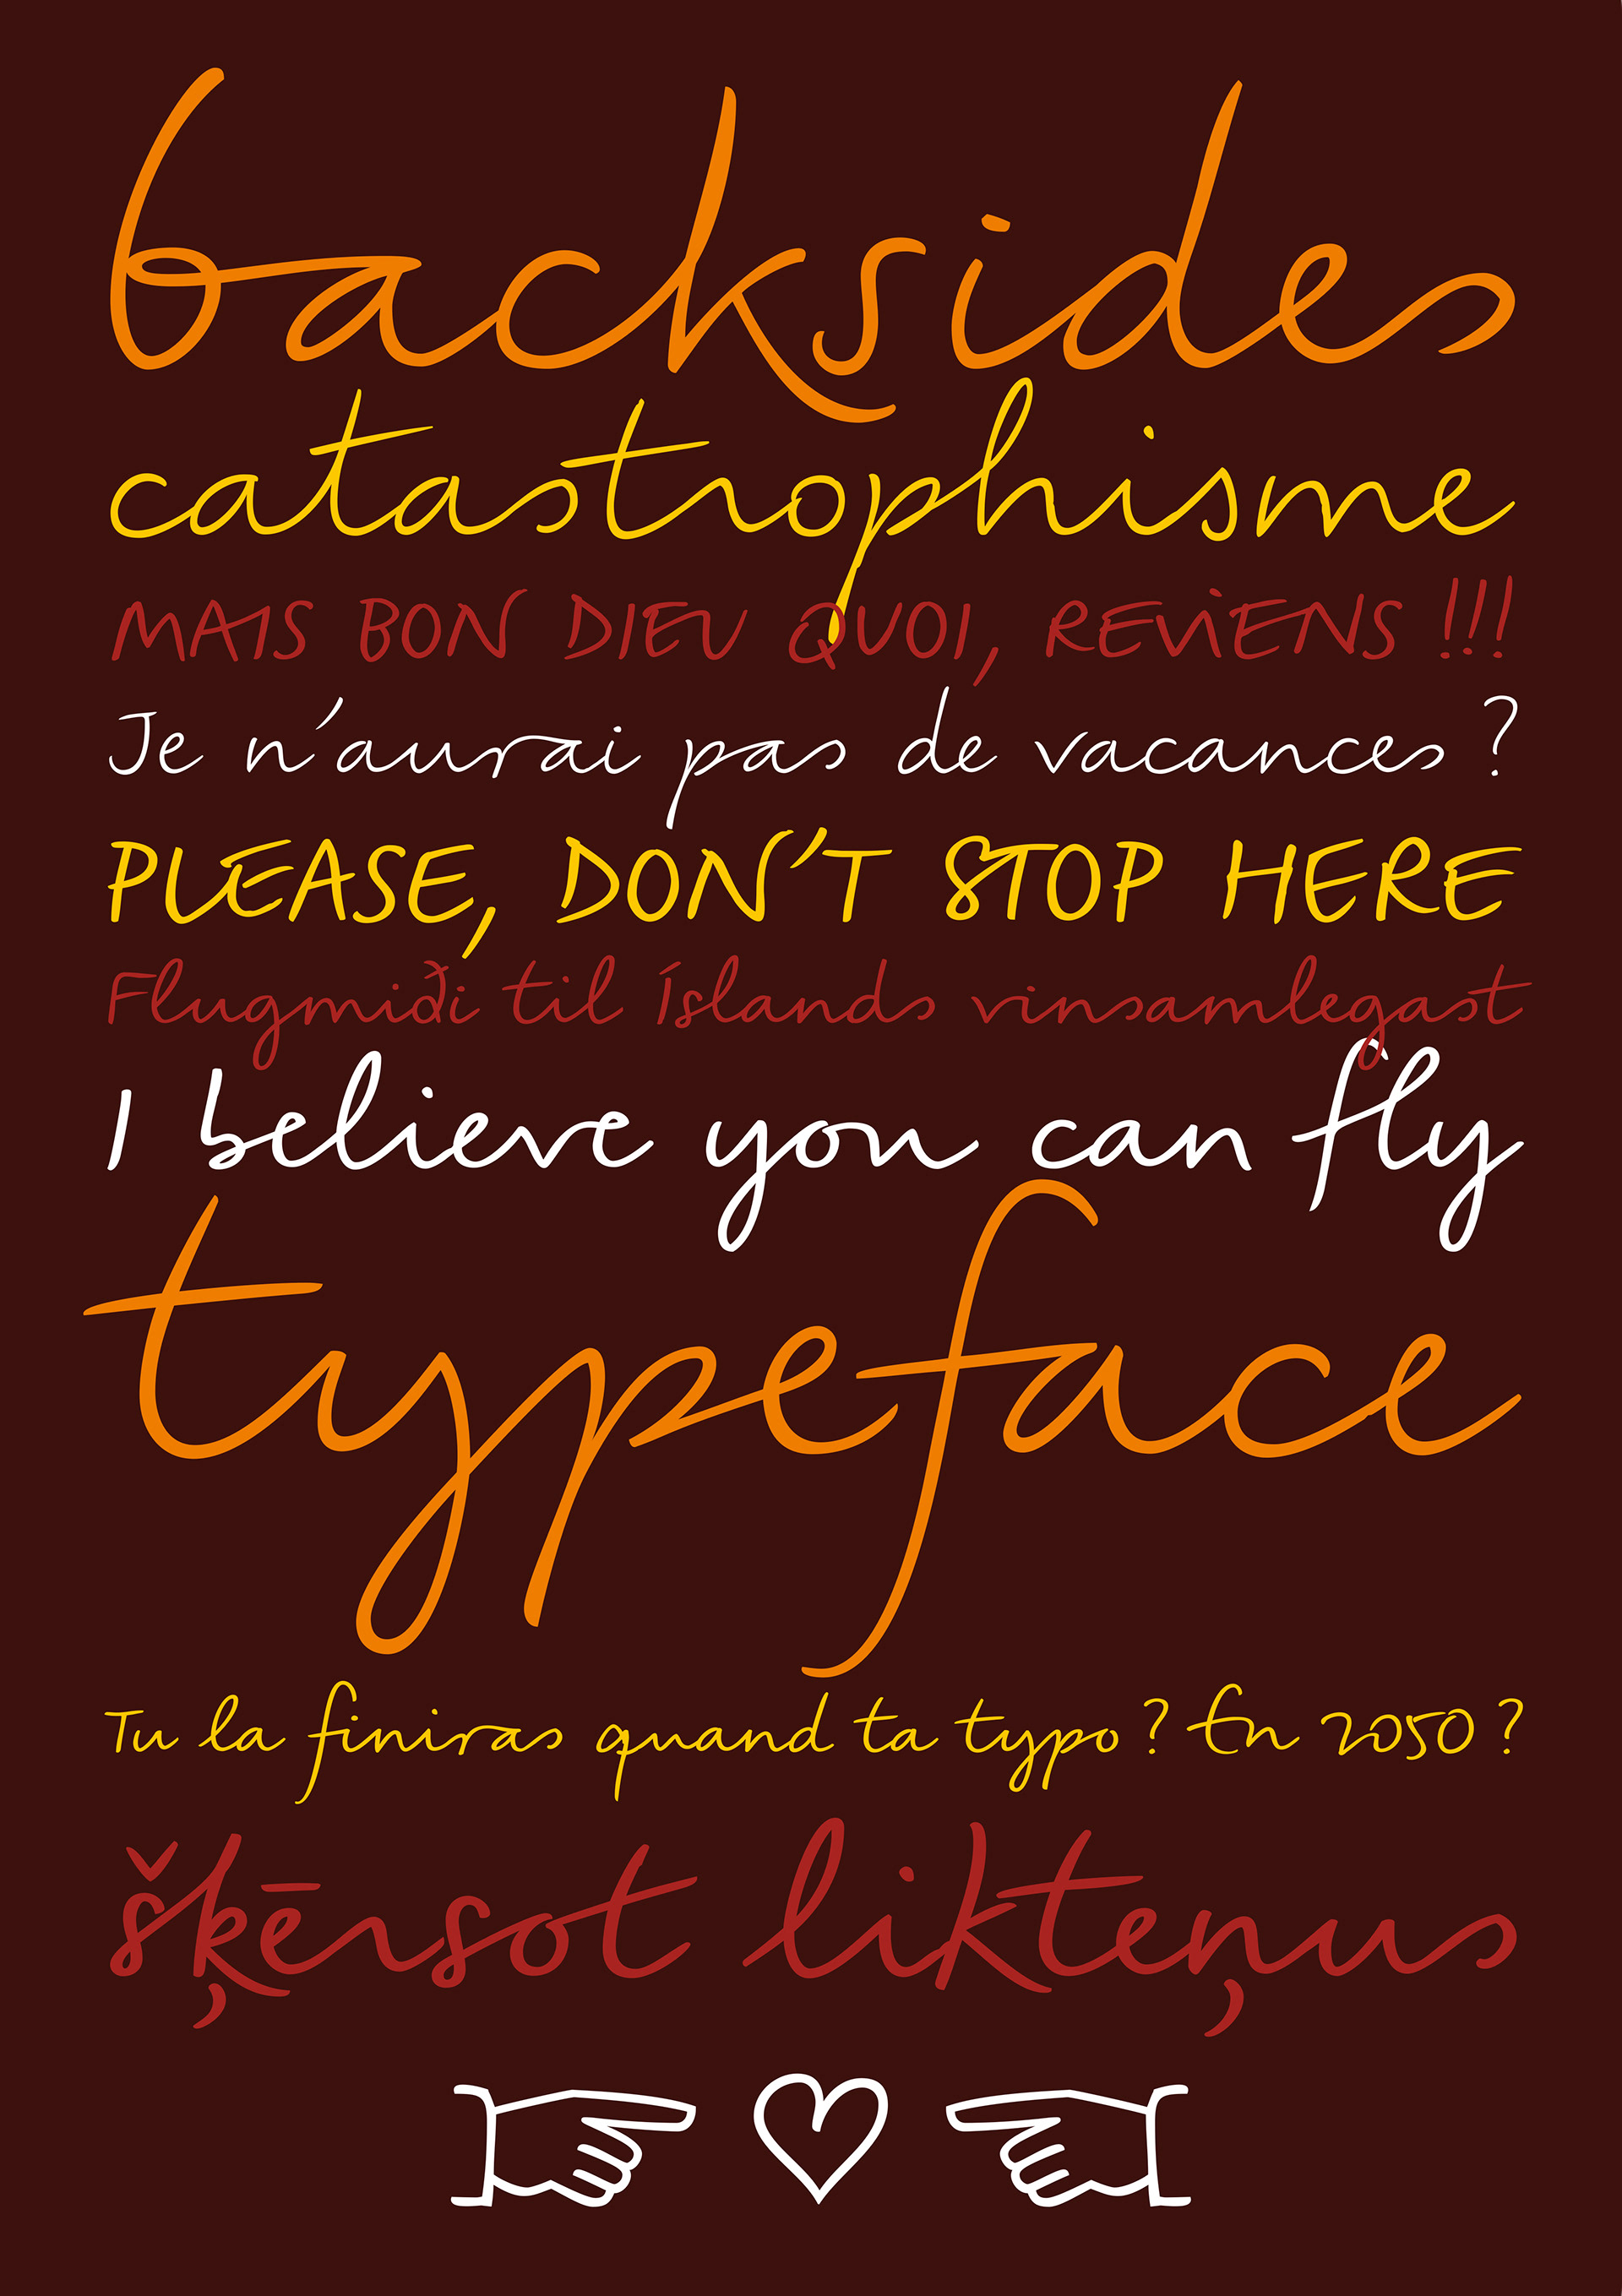 backsides
catastrophisme
MAIS BON DIEU QUOI, REViENS !!!
Je n'aurai pas de vacances ?
PLEASE, DON'T STOP HERE
Flugmiði til Íslands vinsamlegast
I believe you can fly
typeface
Tu la finiras quand ta typo ? En 2050 ?
šķērsot likteņus